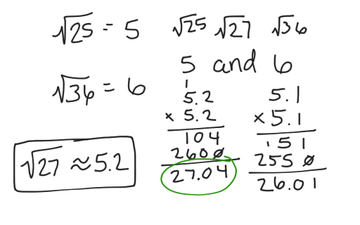 √25 = 5
√25 √27 √36
5 and 6
√36 = 6
1
5.2
× 5.2
104
2600
27.04
5.1
× 5.1
151
2550
26.01
√27 ≈ 5.2